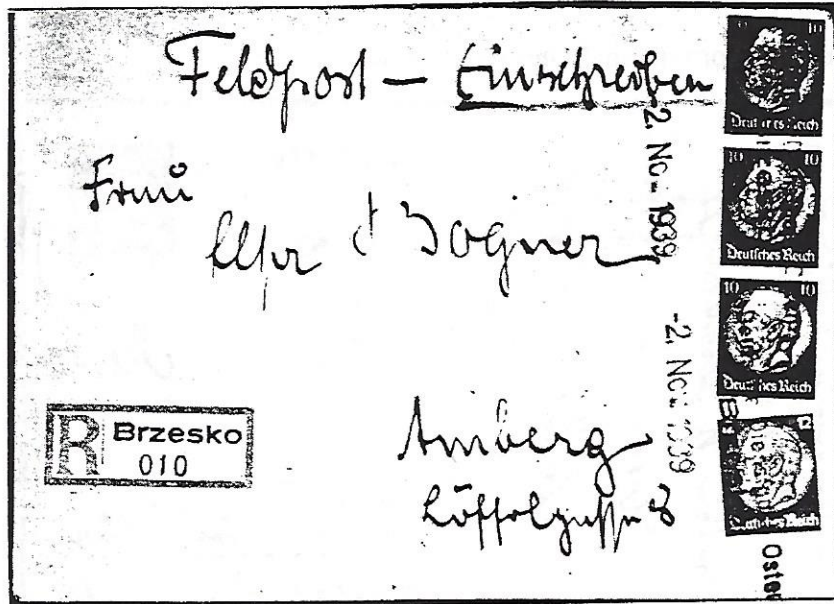 Feldpost — Einschreiben
Frau
Bogner
Amberg
Löffelgasse 8
R Brzesko
010
-2. Nov. 1939
-2. Nov. 1939
10
Deutsches Reich
10 10
Deutsches Reich
10 10
Deutsches Reich
12
Deutsches Reich
Oster